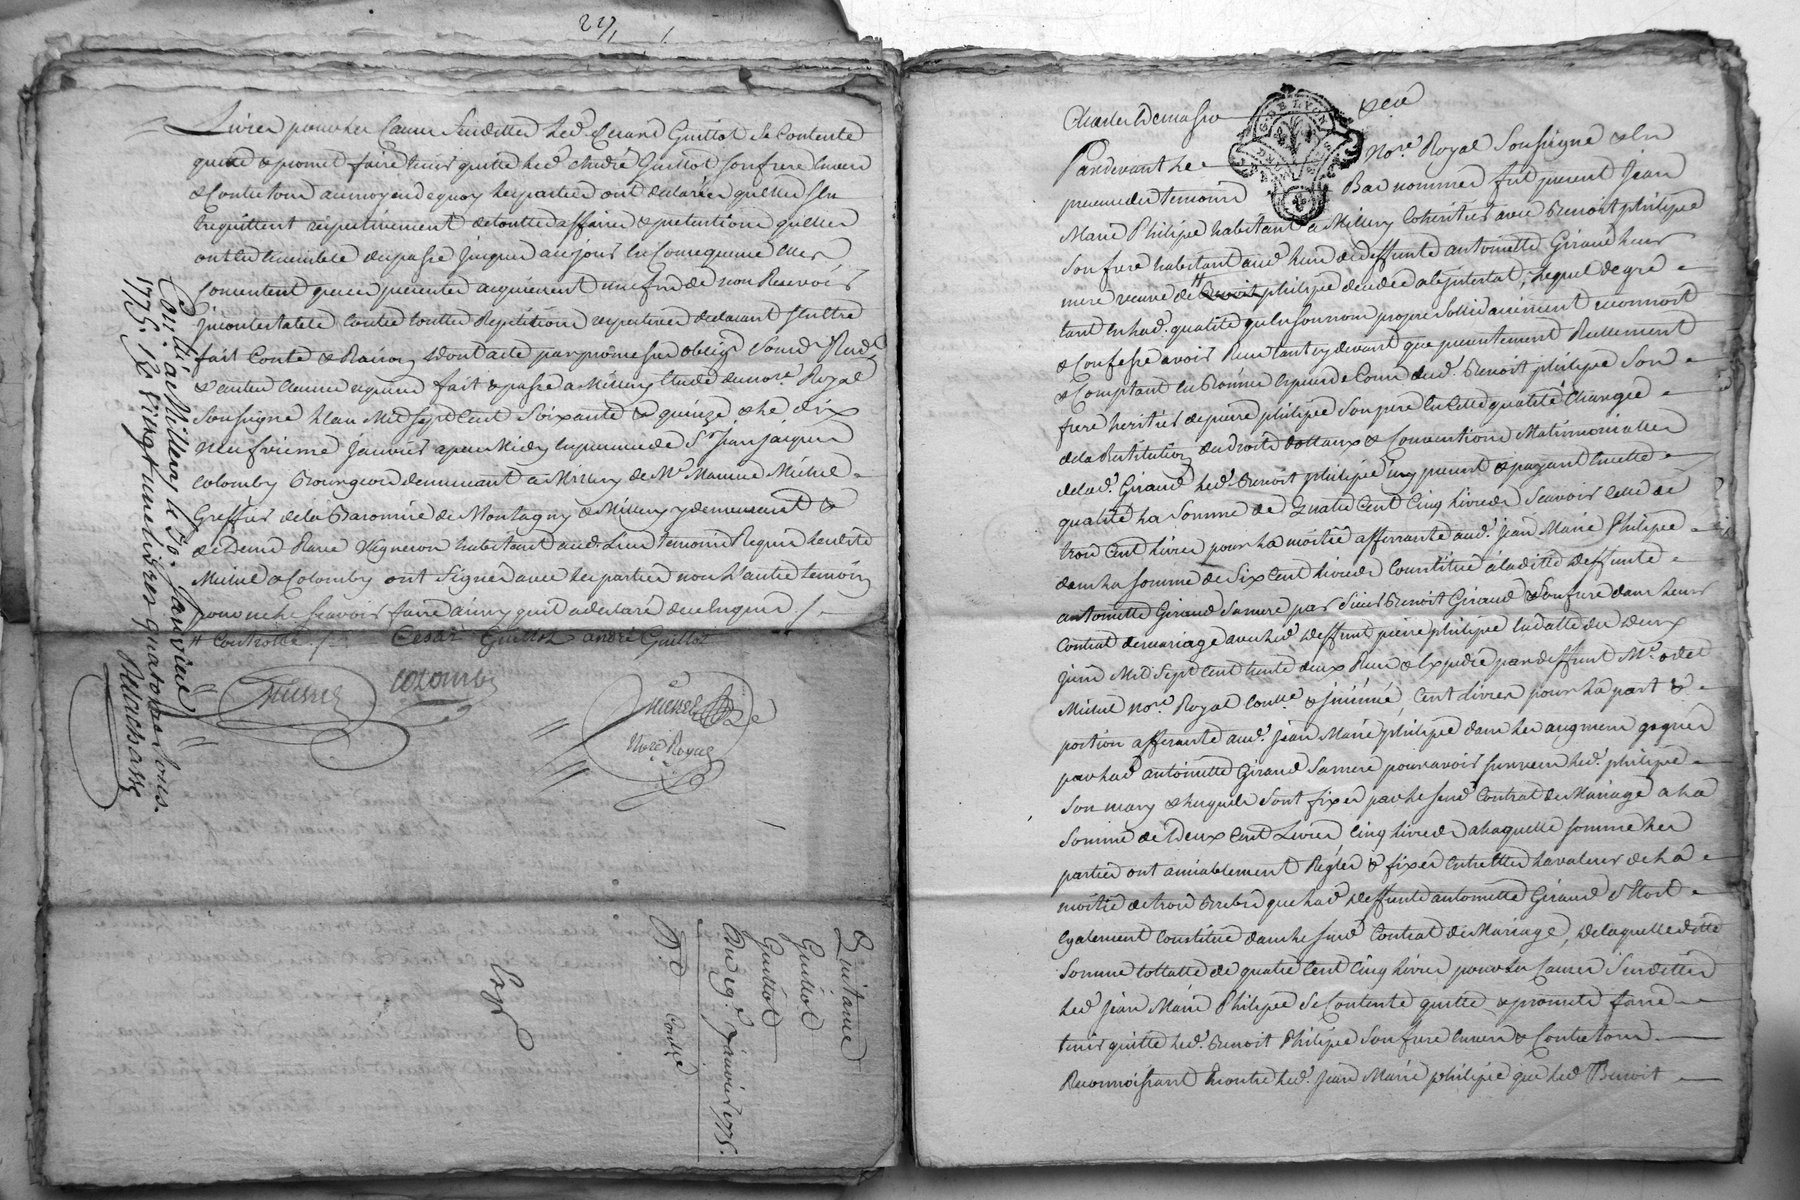 Livres pour les causes susdittes led. Cesard Guillot se contente
quitte & promet faire tenir quitte led. André Guillot son frere envers
& contre tous au moyen de quoy les parties ont declarées quelles sen
trequittent respectivement de touttes affaires & pretentions quelles
ont eu ensemble du passé jusques au jour en consequence elles
consentent que ces presentes acquierent une fin de non Recevoir
incontestable contre touttes Repetitions respectives declarant s'entre
fait Conte & Raison dont acte par promesses oblig. Soum. Ren.
& autres clauses requises fait & passé a Millery Etude dud. no.re Royal
soussigné Lan Mil Sept Cent Soixante & quinze & le dix
neufvieme Janvier apres Midy en presence de S.r Jean Jaques
Colomby Bourgeois demeurant a Millery de M.e Maurice Michel
Greffier de la Baronnie de Montagny & Millery y demeurant &
de Denis Vigneron habitant aud. Lieu temoins Requis lesd.
Michel & Colomby ont Signés avec les parties non L'autre temoin
pour ne le sçavoir faire ainsy quil a declaré de ce enquis ./.
Controlle ./. Cesar Guillot andré Guillot
Michel Colomby
Michel
No.re Royal
Con.lé a Millery le 30. Janvier
1775. R. Vingt une livres quatorze sous.
Delachasse
Quitance
Guillot
Guillot
Du 19.e Janvier 1775.
Con.lé
Exp.é
271
Pardevant Le no.re Royal Soussigné & En
presence des temoins Bas nommés fut present Jean
Marie Philippe habitant a Millery coheritier avec Benoit philippe
son frere habitant aud. lieu de deffunte antoinette Giraud leur
mere veuve de philippe decedée abintestat, Lequel de gré
tant en lad. qualité qu'en son nom propre solidairement reconnoit
& Confesse avoir Reçu tant cy devant que presentement Reellement
& Comptant en Bonnes especes de Cours dud. Benoit philippe Son
frere heritier de pierre philippe Son pere en cette qualité Chargée
de la Restitution des droits dottaux & Conventions Matrimonialles
de lad. Giraud led. Benoit philippe icy present & payant en cette
qualité La Somme de Quatre Cent Cinq livres Sçavoir Celle de
trois Cent livres pour La moitié afferante aud. Jean Marie Philippe
dans La somme de Six Cent livres Constitué a laditte deffunte
antoinette Giraud Sa mere par Sieur Benoit Giraud Son frere dans leur
Contrat de mariage avec led. deffunt pierre philippe en datte du deux
juin Mil Sept Cent trente deux Reçu & Expedié par deffunt M.e odet
Michel no.re Royal Con.lé & insinué, Cent Livres pour La part &
portion afferante aud. Jean Marie philippe dans les augment gagnés
par lad. antoinette Giraud Sa mere pour avoir survecu led. philippe
Son mary & lesquels Sont fixés par le susd. Contrat de Mariage a la
Somme de Deux Cent Livres Cinq livres a laquelle somme les
parties ont amiablement Réglés & fixés entre elles la valeur de la
moitié de trois Brebis que lad. deffunte antoinette Giraud S'étoit
Egalement Constituée dans le susd. Contrat de Mariage, de laquelle ditte
Somme totalle de quatre Cent Cinq livres pour les Causes Susdittes
led. Jean Marie Philippe se Contente quitte & promet faire
tenir quitte led. Benoit Philippe Son frere envers & Contre tous
Reconnoissant en outre led. Jean Marie philippe que led. Benoit